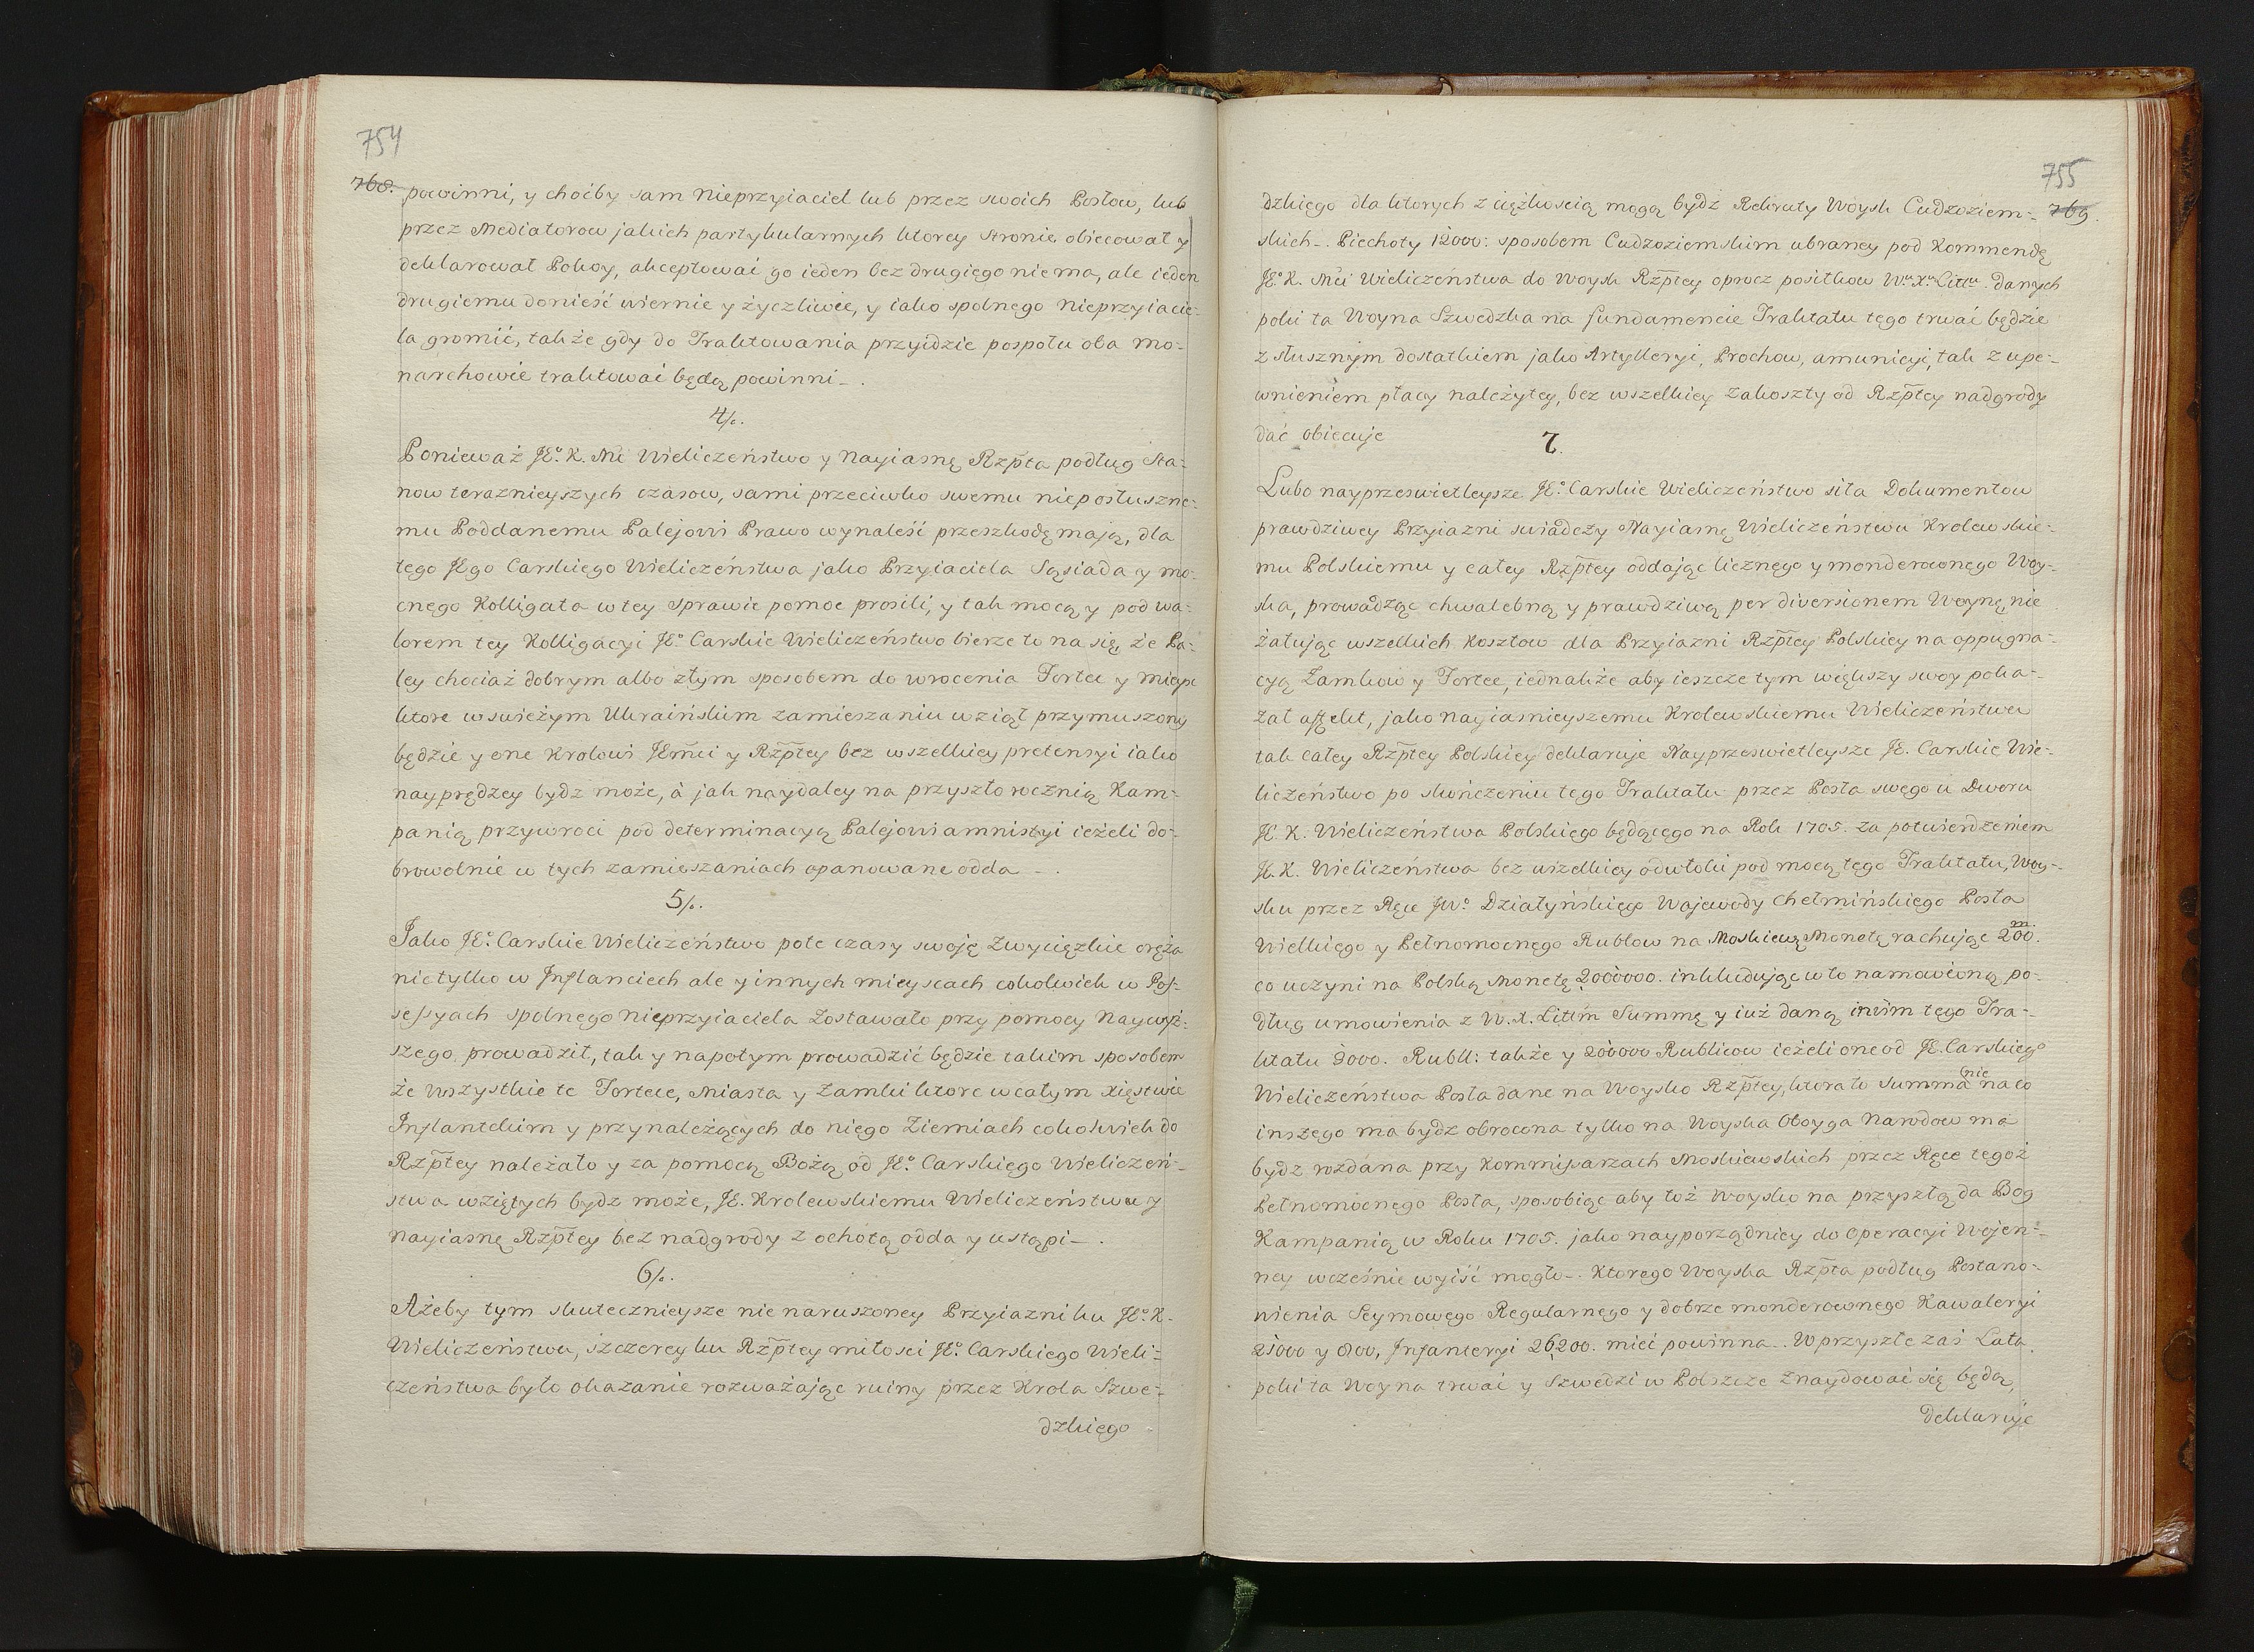 754
768. powinni, y choćby sam Nieprzyiaciel lub przez swoich Posłow, lub
przez Mediatorow jakich partykularnych ktorey stronie obiecował y
deklarował Pokoy, akceptować go ieden bez drugiego nie ma, ale ieden
drugiemu donieść wiernie y życzliwie, y iako spolnego Nieprzyiacie-
la gromić, także gdy do Traktowania przyidzie pospołu oba Mo-
narchowie traktować będą powinni -.
4/o.
Ponieważ JEo. K. Mć Wieliczeństwo y Nayiasnę Rzpta podług Sta-
now teraznieyszych czasow, sami przeciwko swemu nieposłuszne-
mu Poddanemu Palejowi Prawo wynaleść przeszkodę mają, dla
tego JEgo Carskiego Wieliczeństwa jako Przyiaciela Sąsiada y mo-
cnego Kolligata w tey sprawie pomoc prosili, y tak mocą y pod wa-
lorem tey Kolligacyi JEo. Carskie Wieliczeństwo bierze to na się, że Pa-
ley chociaż dobrym albo złym sposobem do wrocenia Fortec y mieysc
ktore w swieżym Ukraińskim zamieszaniu wziął przymuszony
będzie y one Krolowi JEmci y Rzptey bez wszelkiey pretensyi iako
nayprędzey bydz może, à jak naydaley na przyszło rocznią Kam-
panią przywroci pod determinacyą Palejowi amnistyi ieżeli do-
browolnie w tych zamieszaniach opanowane odda -.
5/o.
Jako JEo. Carskie Wieliczeństwo pote czasy swoję Zwycięzkie oręża
nietylko w Inflanciech ale y innych mieyscach cokolwiek w Pos-
sessyach spolnego nieprzyiaciela zostawało przy pomocy Naywyż-
szego prowadził, tak y napotym prowadzić będzie takim sposobem
że wszystkie te Fortece, Miasta y Zamki ktore w całym Xięstwie
Inflantckim y przynależących do niego Ziemiach cokolwiek do
Rzptey należało y za pomocą Bożą od JEo. Carskiego Wieliczeń-
stwa wziętych bydz może, JE. Krolewskiemu Wieliczeństwu y
Nayiasnę Rzptey bez nadgrody z ochotą odda y ustąpi -.
6/o.
Ażeby tym skutecznieysze nienaruszoney Przyiazni ku JEo. K.
Wieliczeństwu, szczerey ku Rzptey miłosci JEo. Carskiego Wieli-
czeństwa było okazanie rozważając ruiny przez Krola Szwe-
dzkiego
755
dzkiego dla ktorych z ciężkoscią mogą bydz Rekruty Woysk Cudzoziem- 769.
skich -. Piechoty 12000. sposobem Cudzoziemskim ubraney pod Kommendę
JEo. K. Mći Wieliczeństwa do Woysk Rzptey oprocz posiłkow Wu. Xu. Littu. danych
poki ta Woyna Szwedzka na fundamencie Traktatu tego trwać będzie
z słusznym dostatkiem jako Artylleryi, Prochow, amunicyi, tak z upe-
wnieniem płacy należytey, bez wszelkiey zakoszty od Rzptey nadgrody
dać obiecuje
7.
Lubo nayprzeswietleysze JEo. Carskie Wieliczeństwo siła Dokumentow
prawdziwey Przyiazni swiadczy Nayiasnę Wieliczeństwu Krolewskie-
mu Polskiemu y całey Rzptey oddając licznego y monderownego Woy-
ska, prowadząc chwalebną y prawdziwą per diversionem Woynę, nie
żałując wszelkich Kosztow dla Przyiazni Rzptey Polskiey na oppugna-
cyą Zamkow y Fortec, iednakże aby ieszcze tym większy swoy poka-
zał affekt, jako nayiasnieyszemu Krolewskiemu Wieliczeństwu
tak całey Rzptey Polskiey deklaruje Nayprzeswietleysze JE. Carskie Wie-
liczeństwo po skończeniu tego Traktatu przez Posła swego u Dworu
JE. K. Wieliczeństwa Polskiego będącego na Rok 1705. za potwierdzeniem
JE. K. Wieliczeństwa bez wszelkiey odwłoki pod mocą tego Traktatu, Woy-
sku przez Ręce JWo. Działyńskiego Wojewody Chełmińskiego Posła
Wielkiego y Pełnomocnego Rublow na Moskiewską Monetę rachując 200m.
co uczyni na Polską Monetę 2000000. inkludując w to namowioną po-
dług umowienia z W. X. Littm Summę y iuż daną in vim tego Tra-
ktatu Rubll: także y 20000 Rublicow ieżeli one od JE. Carskiego
Wieliczeństwa Posła dane na Woysko Rzptey, ktora to Summa nie na co
inszego ma bydz obrocona tylko na Woyska Oboyga Narodow ma
bydz rozdana przy Kommissarzach Moskiewskich przez Ręce tegoż
Pełnomocnego Posła, sposobiąc aby toż Woysko na przyszłą da Bog
Kampanią w Roku 1705. jako nayporządniey do Operacyi Wojen-
ney wcześnie wyiść mogło -. Ktorego Woyska Rzpta podług Postano-
wienia Seymowego Regularnego y dobrze monderownego Kawaleryi
21000 y 800, Infanteryi 26,200. mieć powinna -. W przyszłe zaś Lata
poki ta Woyna trwać y Szwedzi w Polszcze znaydować się będą,
deklaruje